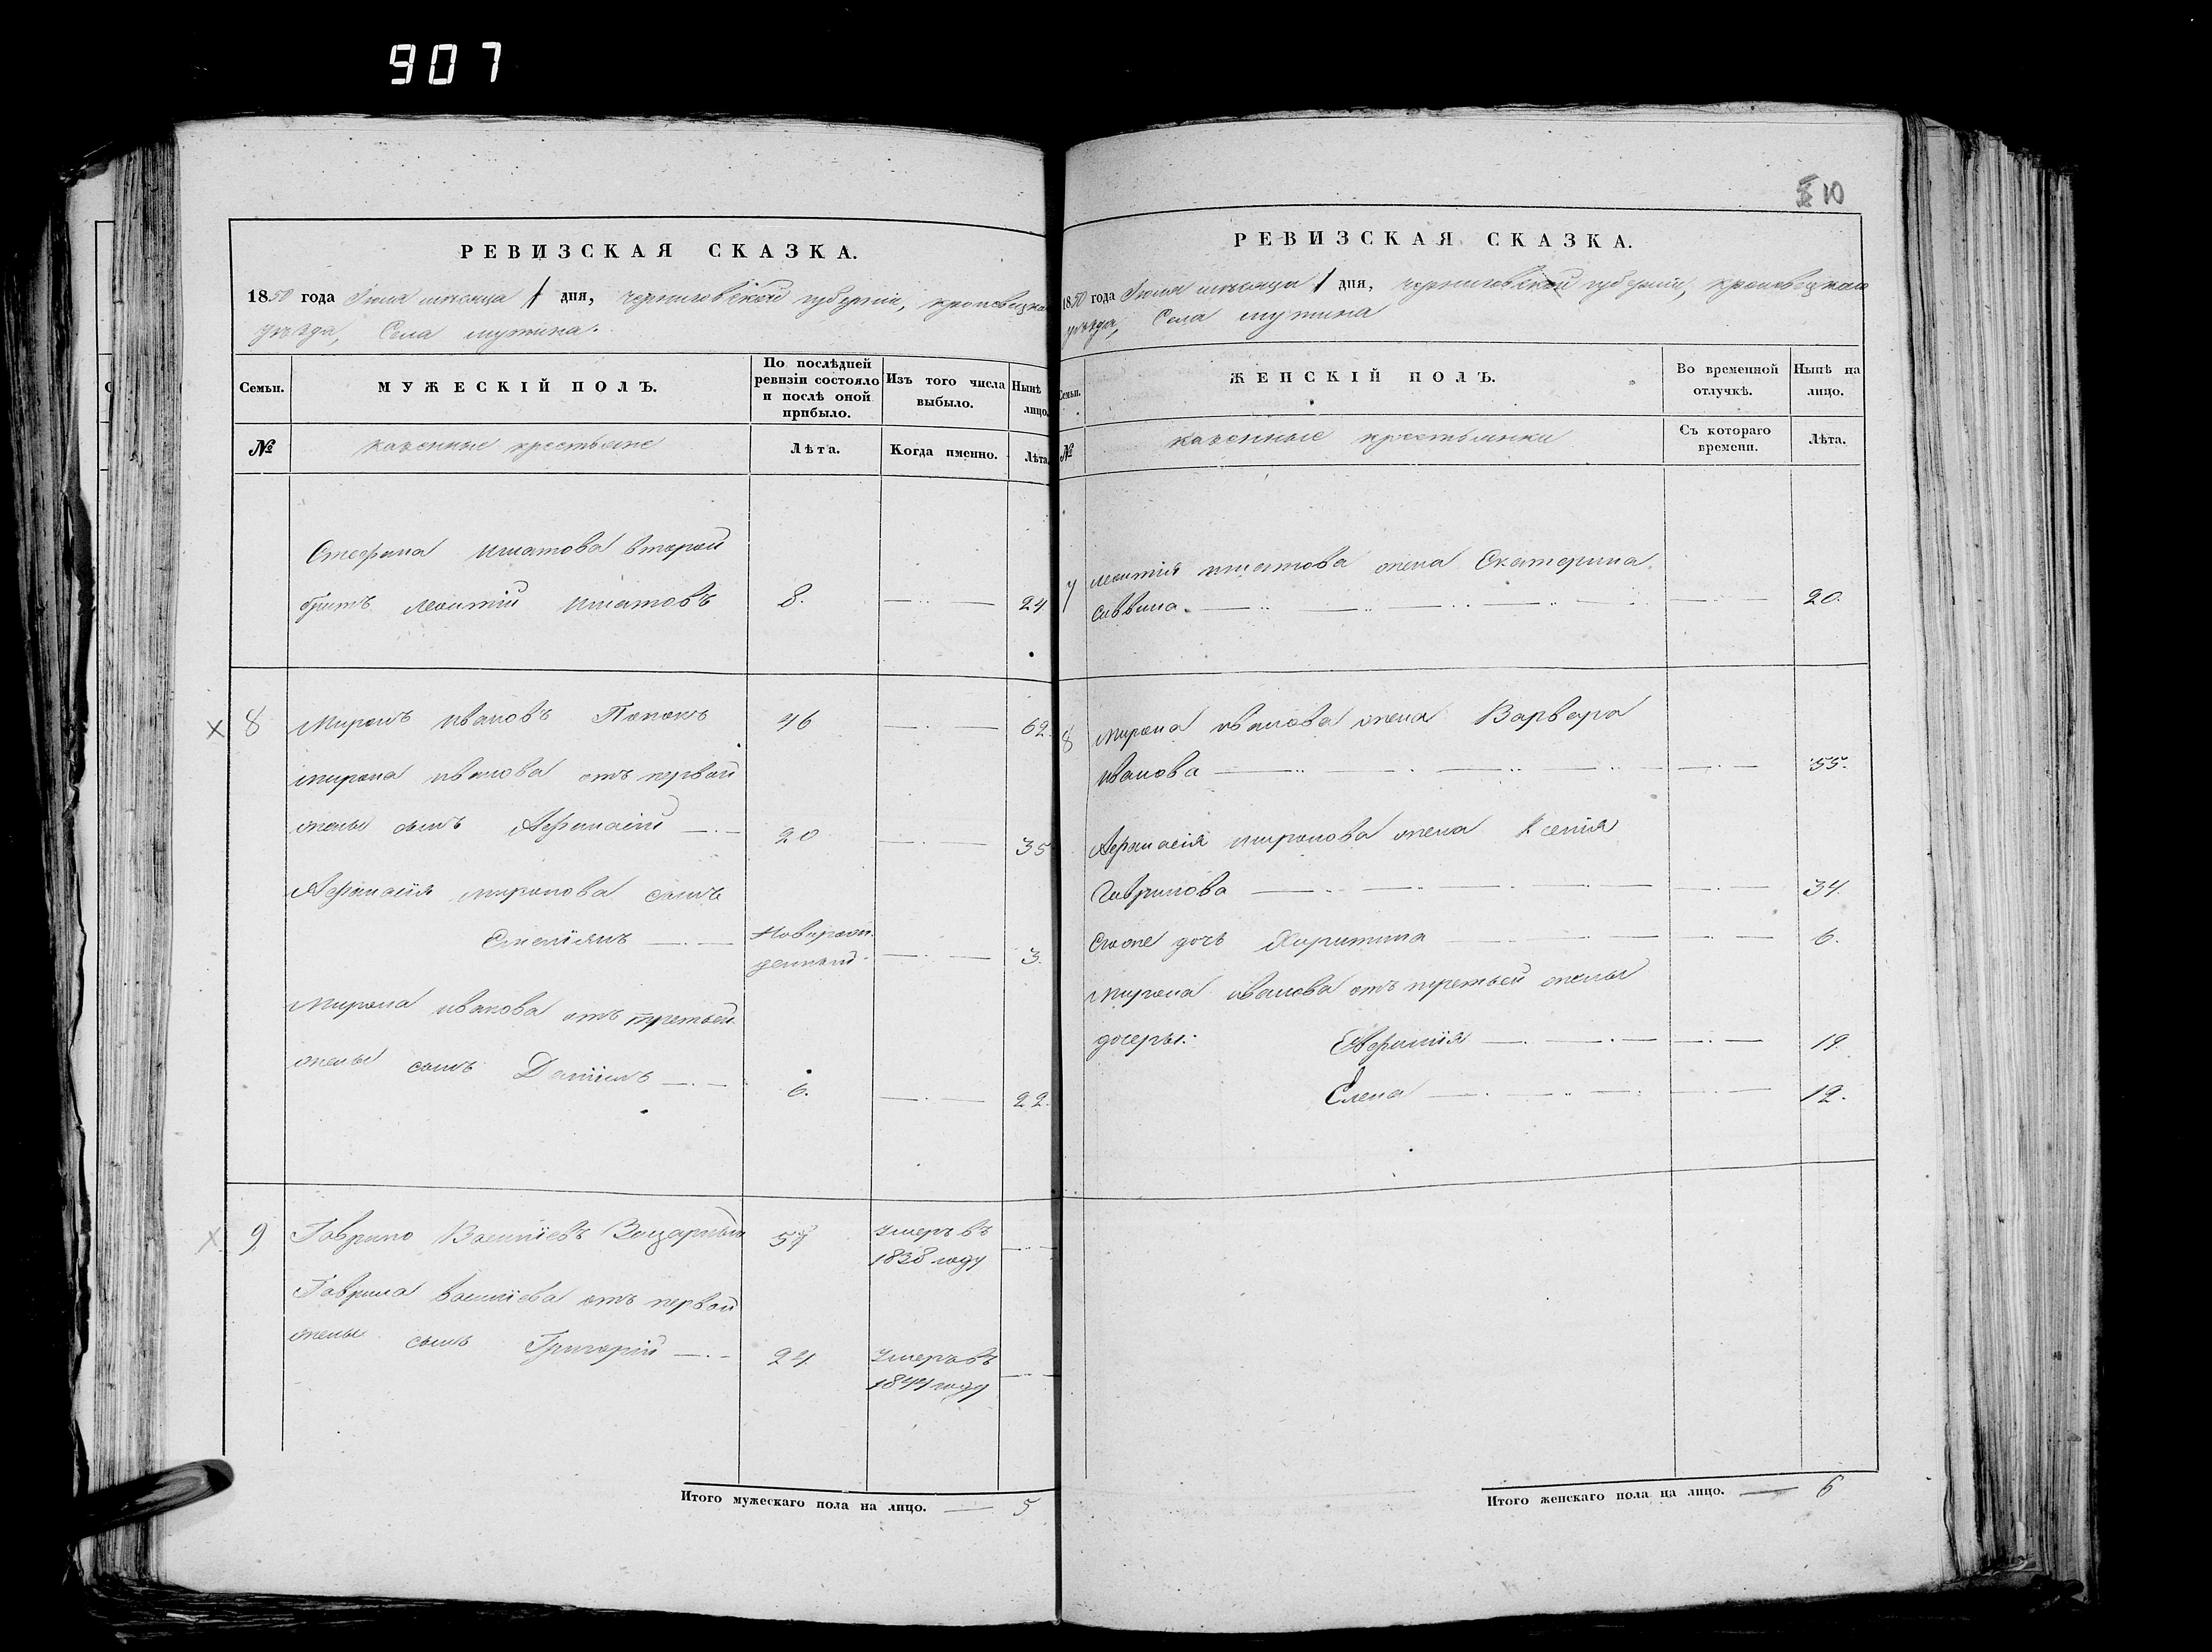 907
10
РЕВИЗСКАЯ СКАЗКА.
1850 года Іюля мѣсяца 1 дня, Черниговской губерніи, кролевецкаго
уѣзда, Села мутина.
Семьи.
МУЖЕСКІЙ ПОЛЪ.
По послѣдней
ревизіи состояло
и послѣ оной
прибыло.
Изъ того числа
выбыло.
Нынѣ
лицо.
№
казенные крестьяне
Лѣта.
Когда именно.
Лѣта.
Стефана игнатова второй
братъ леонтій игнатовъ 8. 24
8 миронъ ивановъ 46 62.
мирона иванова отъ первой
жены сынъ Афанасій 20 35
Афанасія миронова сынъ
Новорож-
денный 3.
мирона иванова отъ третьей
жены сынъ Даніилъ 6. 22.
9 Гаврило Василіевъ 57 умеръ въ
1838 году
Гаврила василіева отъ первой
жены сынъ Григорій 24 Умеръ въ
1844 году
Итого мужескаго пола на лицо. 5
РЕВИЗСКАЯ СКАЗКА.
1850 года Іюля мѣсяца 1 дня, черниговской губерніи, кролевецкаго
уѣзда, Села мутина
Семьи.
ЖЕНСКІЙ ПОЛЪ.
Во временной
отлучкѣ.
Нынѣ на
лицо.
№
казенные крестьянки
Съ котораго
времени.
Лѣта.
7 леонтія игнатова жена Екатерина
саввина. 20.
8 мирона иванова жена Варвара
иванова 55.
Афанасія миронова жена Ксенія
Гаврилова 34.
дочь Харитина 6.
мирона иванова отъ третьей жены
дочеры: Евфимія 19.
Елена 12.
Итого женскаго пола на лицо. 6